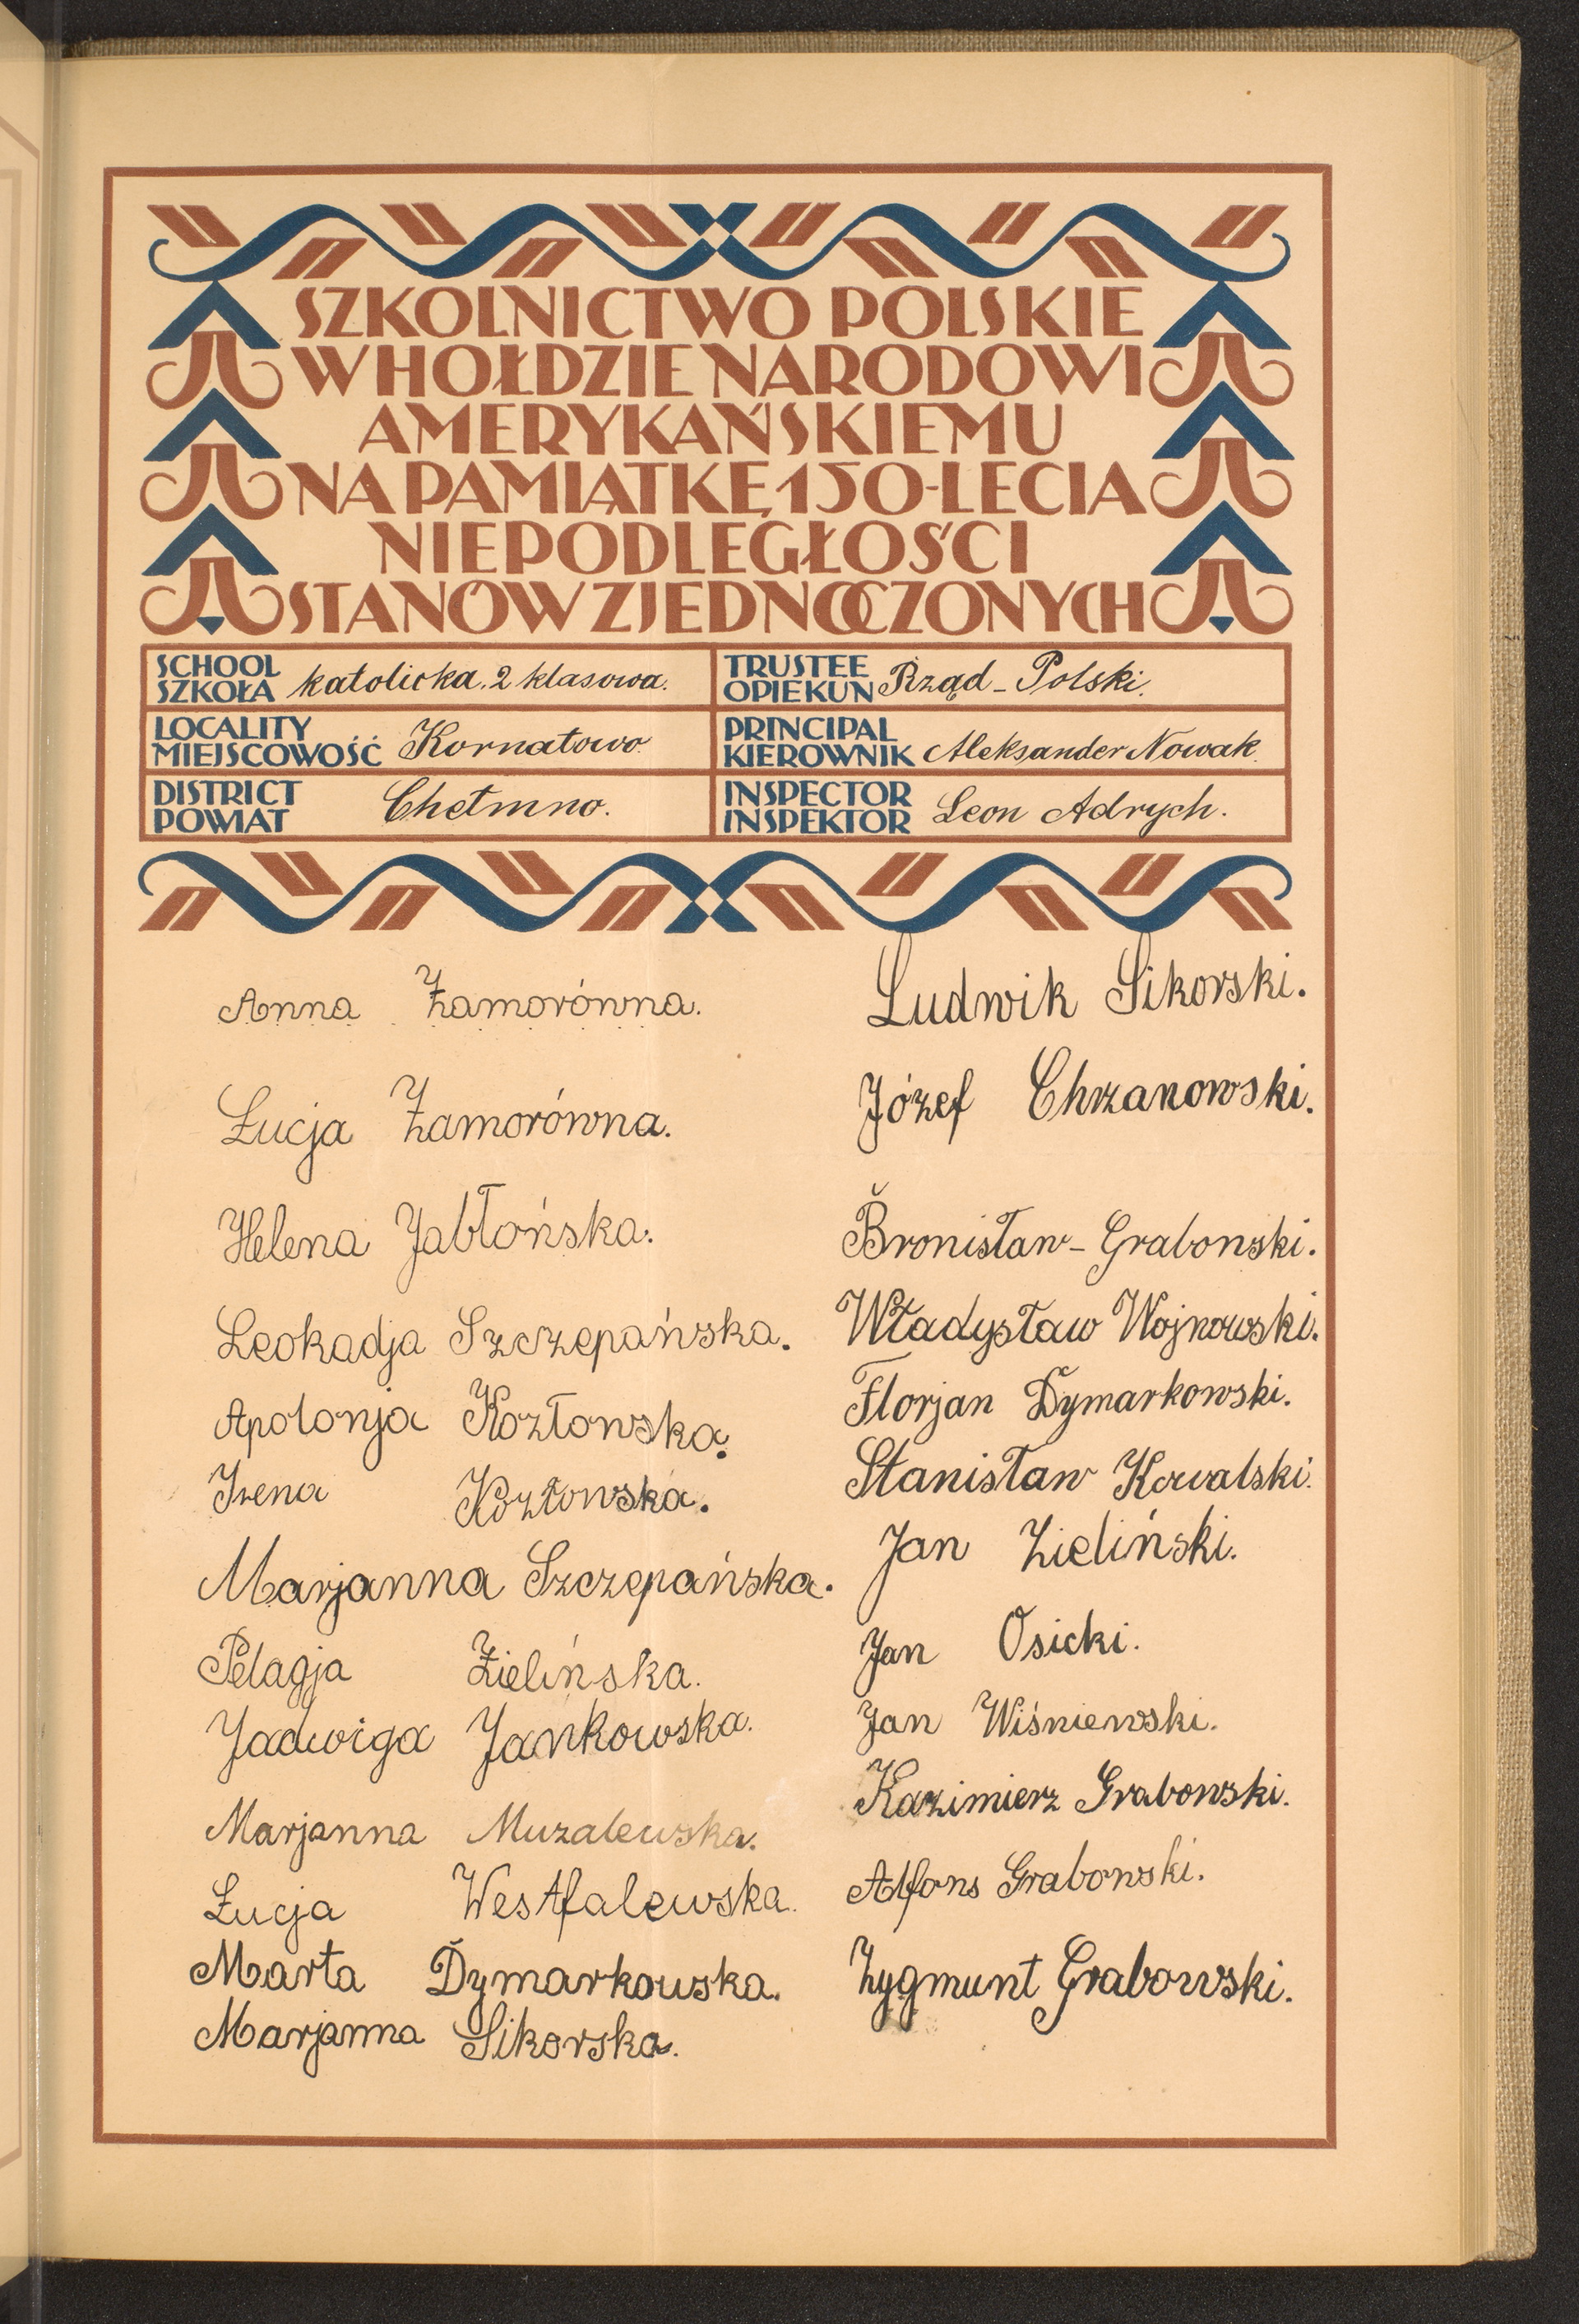 SZKOLNICTWO POLSKIE
W HOŁDZIE NARODOWI
AMERYKAŃSKIEMU
NA PAMIĄTKĘ 150-LECIA
NIEPODLEGŁOŚCI
STANÓW ZJEDNOCZONYCH
SCHOOL
SZKOŁA katolicka. 2 klasowa.
TRUSTEE
OPIEKUN Rząd - Polski.
LOCALITY
MIEJSCOWOŚĆ Kornatowo
PRINCIPAL
KIEROWNIK Aleksander Nowak.
DISTRICT
POWIAT Chełmno.
INSPECTOR
INSPEKTOR Leon Adrych.
Anna Zamorówna.
Łucja Zamorówna.
Helena Jabłońska.
Leokadja Szczepańska.
Apolonja Kozłowska.
Irena Kozłowska.
Marjanna Szczepańska.
Pelagja Zielińska.
Jadwiga Jankowska.
Marjanna Muzalewska.
Łucja Westfalewska.
Marta Dymarkowska.
Marjanna Sikorska.
Ludwik Sikorski.
Józef Chrzanowski.
Bronisław - Grabowski.
Władysław Wojnowski.
Florjan Dymarkowski.
Stanisław Kowalski.
Jan Zieliński.
Jan Osicki.
Jan Wiśniewski.
Kazimierz Grabowski.
Alfons Grabowski.
Zygmunt Grabowski.